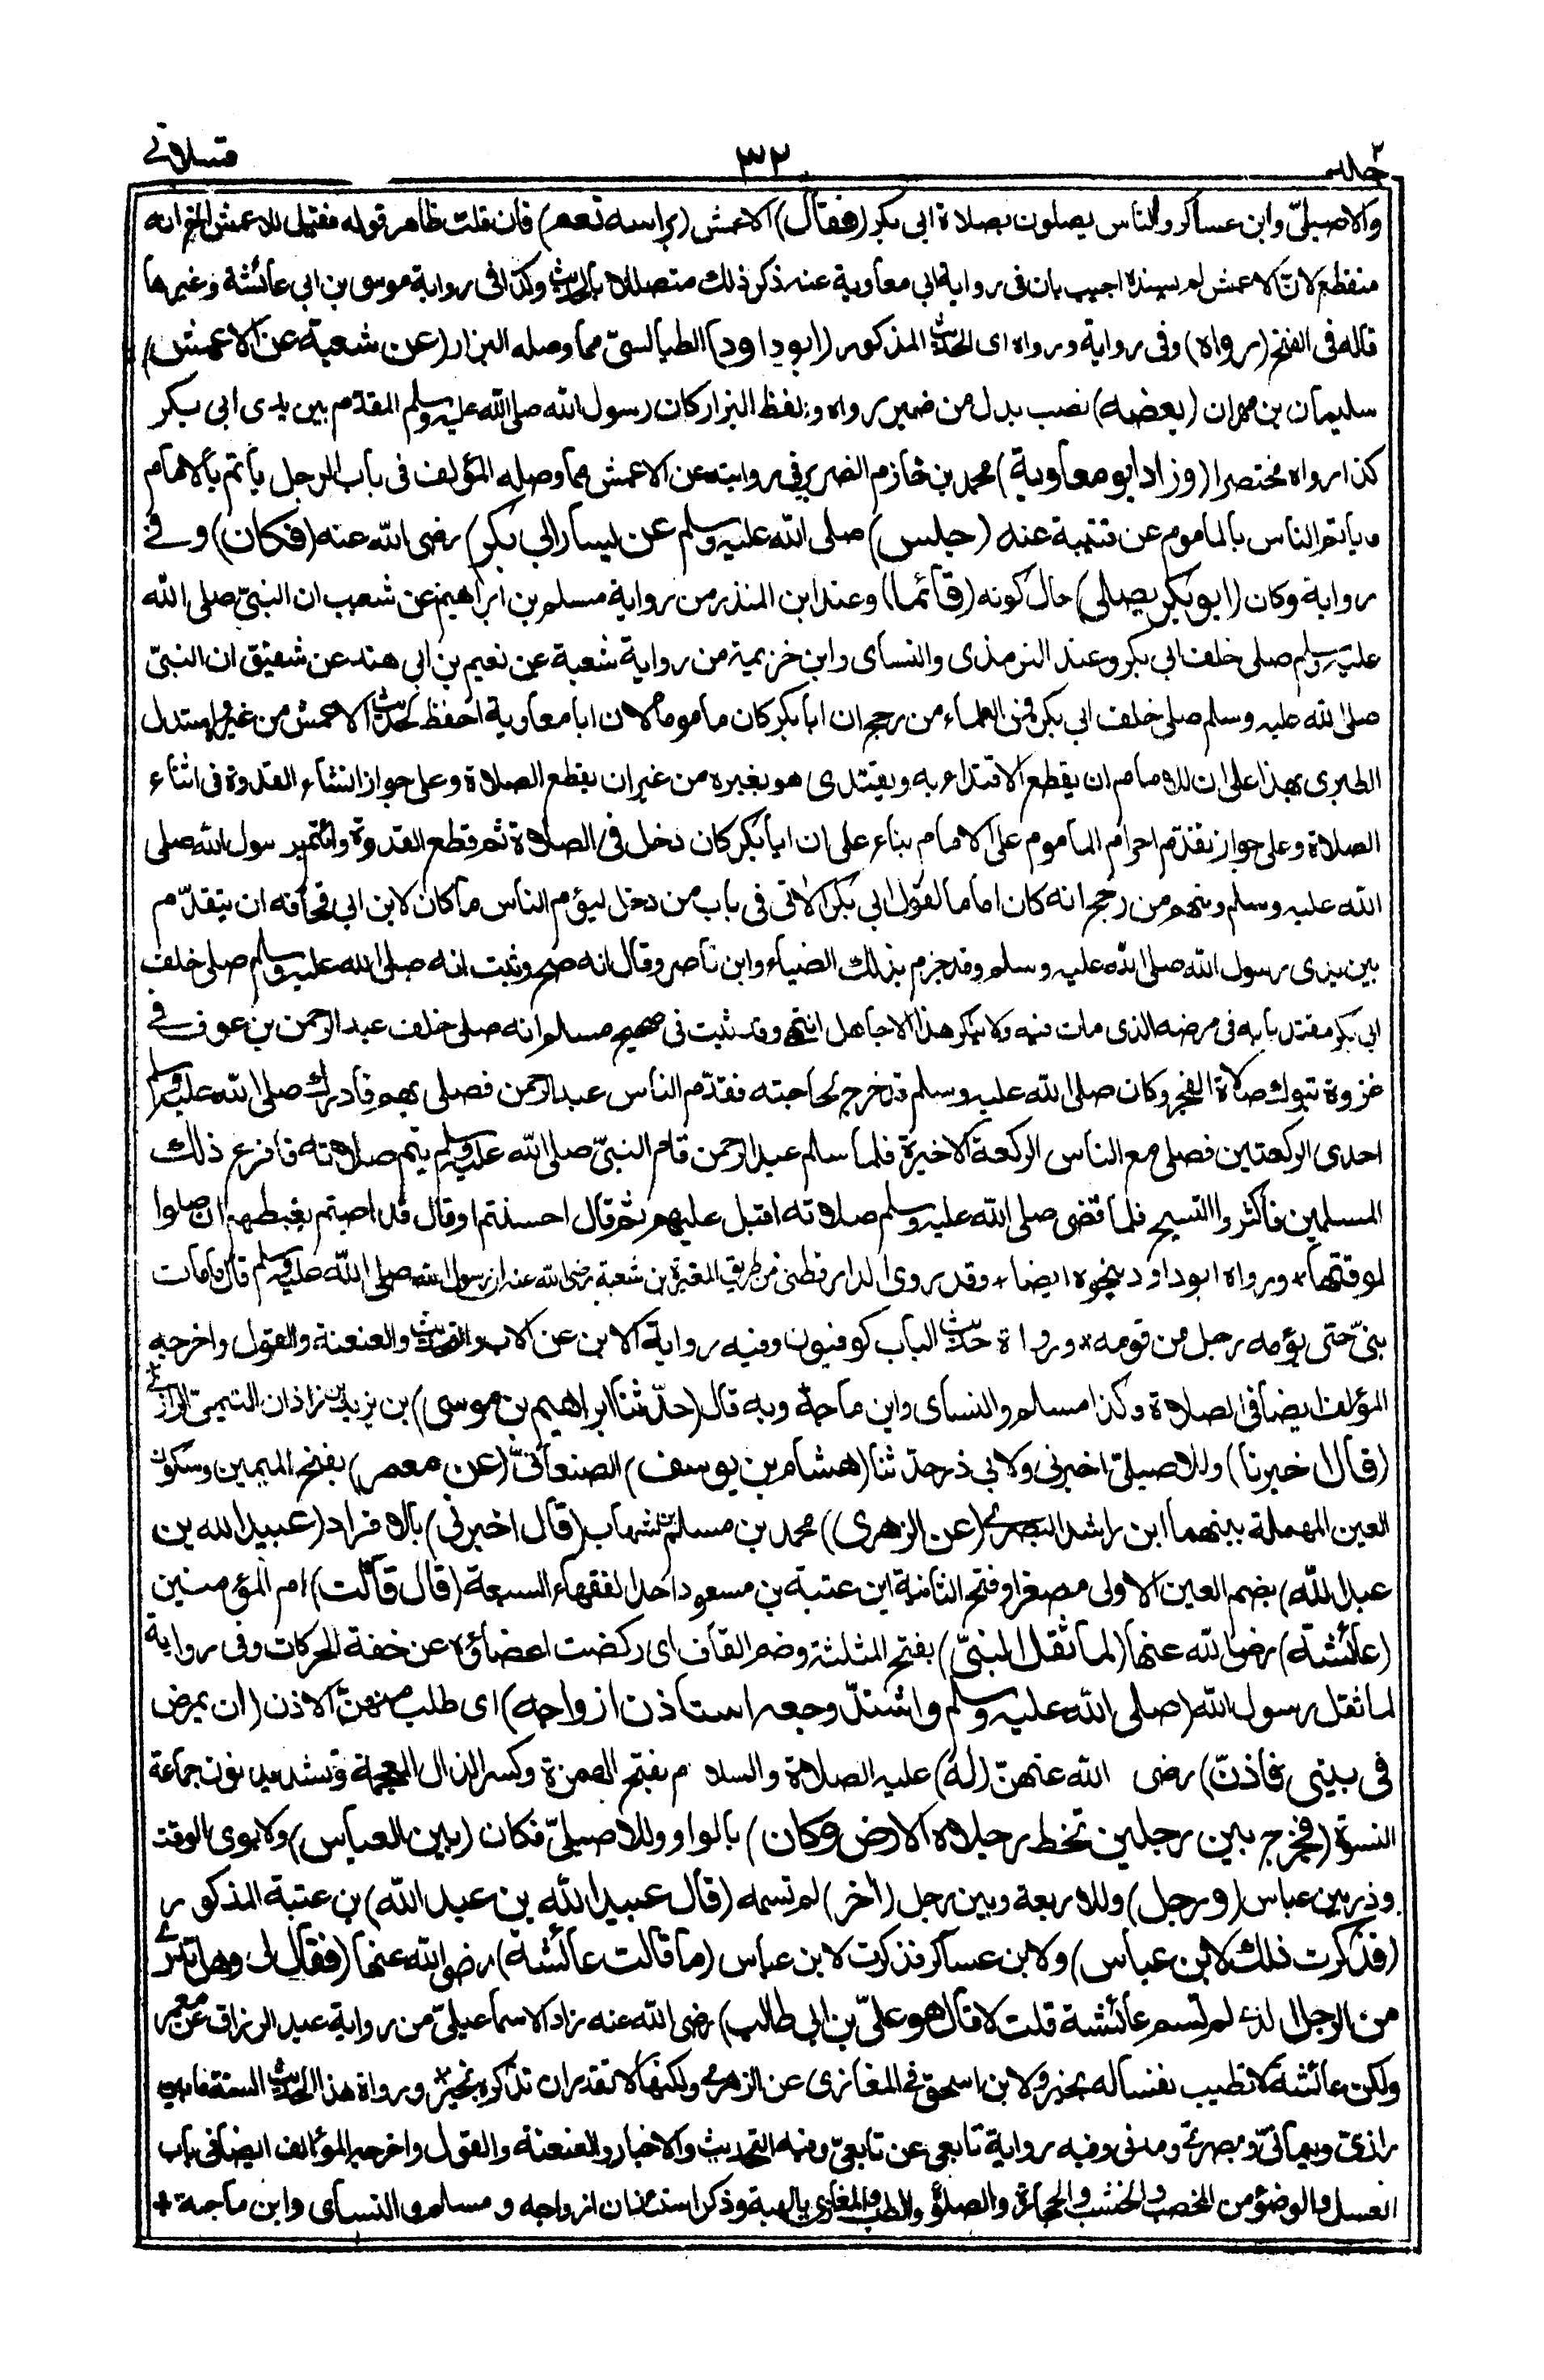 جلد ٢ ٣٢ قسطلانے
والاصيلىّ وابن عساكر والناس يصلون بصلاة ابى بكر (فقال) الاعمش (براسه نعم) فان قلت ظاهر قوله فقيل للاعمش الخ انه
منقطع لانّ الاعمش لم يسنده اجيب بان فى رواية ابى معاوية عنه ذكر ذلك متصلا بالحديث وكذا فى رواية موسى بن ابى عائشة وغيرها
قاله فى الفتح (رواه) وفى رواية ورواه اى الحديث المذكور (ابو داود) الطيالسىّ مما وصله البزار (عن شعبة عن الاعمش)
سليمان بن مهران (بعضه) نصب بدل من ضمير رواه ولفظ البزار كان رسول الله صلى الله عليه وسلم المقدّم بين يدى ابى بكر
كذا رواه مختصرا (وزاد ابو معاوية) محمد بن خازم الضرير فى روايته عن الاعمش مما وصله المؤلف فى باب الرجل يأتم بالامام
ويأتم الناس بالماموم عن قتيبة عنه (جلس) صلى الله عليه وسلم عن يسار ابى بكر) رضى الله عنه (فكان) وفے
رواية وكان (ابو بكر يصلى) حال كونه (قائما) وعند ابن المنذر من رواية مسلم بن ابراهيم عن شعبة ان النبىّ صلى الله
عليه وسلم صلى خلف ابى بكر وعند الترمذى والنساى وابن خزيمة من رواية شعبة عن نعيم بن ابى هند عن شقيق ان النبىّ
صلى الله عليه وسلم صلى خلف ابى بكر فمن العلماء من رجح ان ابا بكر كان ماموما لان ابا معاوية احفظ لحديث الاعمش من غيره واستدل
الطبرى بهذا على ان للامام ان يقطع الاقتداء به ويقتدى هو بغيره من غير ان يقطع الصلاة وعلى جواز انشاء القدوة فى اثناء
الصلاة وعلى جواز تقدّم احرام الماموم على الامام بناء على ان ابا بكر كان دخل فى الصلاة ثم قطع القدوة وائتم برسول الله صلى
الله عليه وسلم ومنهم من رجح انه كان اماما لقول ابى بكر الاتى فى باب من دخل ليؤم الناس ما كان لابن ابى قحافة ان يتقدّم
بين يدى رسول الله صلى الله عليه وسلم وقد جزم بذلك الضياء وابن ناصر وقال انه صح وثبت انه صلى الله عليه وسلم صلى خلف
ابى بكر مقتديا به فى مرضه الذى مات فيه ولا ينكر هذا الا جاهل انتهى وقد ثبت فى صحيح مسلم انه صلى خلف عبد الرحمن بن عوف فے
غزوة تبوك صلاة الفجر وكان صلى الله عليه وسلم قد خرج لحاجته فقدّم الناس عبد الرحمن فصلى بهم فادرك صلى الله عليه وسلم
احدى الركعتين فصلى مع الناس الركعة الاخيرة فلما سلم عبد الرحمن قام النبىّ صلى الله عليه وسلم يتم صلاته فافزع ذلك
المسلمين فاكثروا التسبيح فلما قضى صلى الله عليه وسلم صلاته اقبل عليهم ثم قال احسنتم او قال قد اصبتم يغبطهم ان صلوا
لوقتها* ورواه ابو داود بنحوه ايضا* وقد روى الدارقطنى من طريق المغيرة بن شعبة رضى الله عنه ان رسول الله صلى الله عليه وسلم قال ما مات
نبىّ حتى يؤمه رجل من قومه* ورواة حديث الباب كوفيون وفيه رواية الابن عن الاب والتحديث والعنعنة والقول واخرجه
المؤلف ايضا فى الصلاة وكذا مسلم والنساى وابن ماجة وبه قال (حدّثنا ابراهيم بن موسى) بن يزيد بن زاذان التيمىّ الرازے
(قال اخبرنا) وللاصيلىّ اخبرنى ولابى ذر حدّثنا (هشام بن يوسف) الصنعانىّ (عن معمر) بفتح الميمين وسكون
العين المهملة بينهما ابن راشد البصرے (عن الزهرى) محمد بن مسلم بن شهاب (قال اخبرنى) بالافراد (عبيد الله بن
عبد الله) بضم العين الاولى مصغرا وفتح الثانية ابن عتبة بن مسعود احد الفقهاء السبعة (قال قالت) ام المؤمنين
(عائشة) رضى الله عنها (لما ثقل النبىّ) بفتح المثلثة وضم القاف اى ركضت اعضاؤه عن خفة الحركات وفى رواية
لما ثقل رسول الله (صلى الله عليه وسلم واشتدّ وجعه استاذن ازواجه) اى طلب منهنّ الاذن (ان يمرض
فى بيتى فاذنّ) رضى الله عنهنّ (له) عليه الصلاة والسلام بفتح الهمزة وكسر الذال المعجمة وتشديد نون جماعة
النسوة (فخرج بين رجلين تخط رجلاه الارض وكان) بالواو وللاصيلىّ فكان (بين العباس) ولابوى الوقت
وذر بين عباس (ورجل) وللاربعة وبين رجل (اخر) لم تسمه (قال عبيد الله بن عبد الله) بن عتبة المذكور
(فذكرت ذلك لابن عباس) ولابن عساكر فذكرت لابن عباس (ما قالت عائشة) رضى الله عنها (فقال لى وهل تدرے
من الرجل الذے لم تسم عائشة قلت لا قال هو علىّ بن ابى طالب) رضى الله عنه زاد الاسماعيلىّ من رواية عبد الرزاق عن معمر
ولكن عائشة لا تطيب نفسا له بخير ولابن اسحق فے المغازى عن الزهرے ولكنها لا تقدر ان تذكره بخير* ورواة هذا الحديث الستة ما بين
رازىّ ويمانىّ وبصرىّ ومدنى وفيه رواية تابعى عن تابعىّ وفيه التحديث والاخبار والعنعنة والقول واخرجه المؤلف ايضا فى باب
الغسل والوضوء من المخضب والخشب والحجارة والصلاة والطب والمغازى والهبة وذكر استئذان ازواجه ومسلم والنساى وابن ماجة*